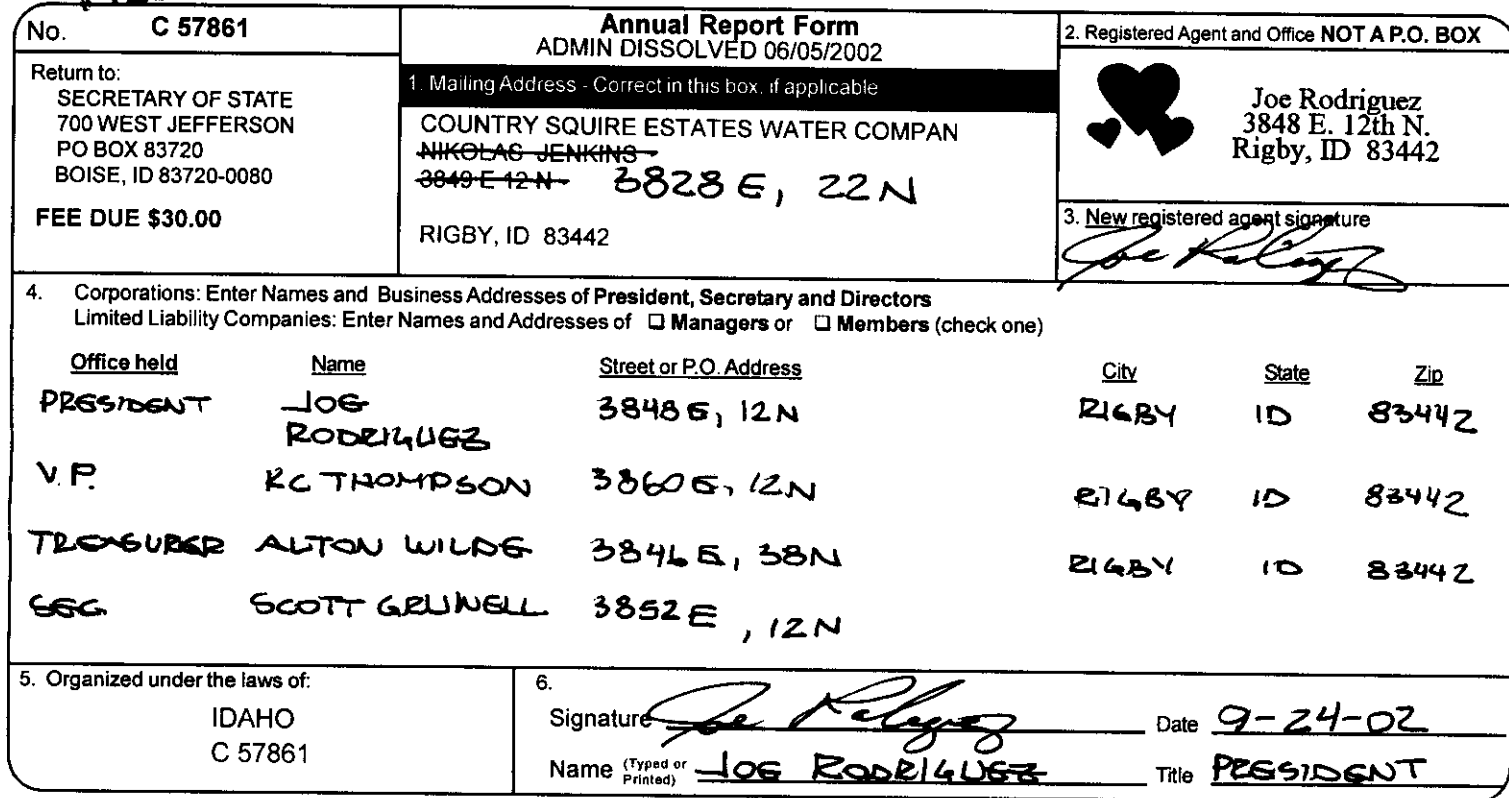 No. C 57861
Annual Report Form
ADMIN DISSOLVED 06/05/2002
2. Registered Agent and Office NOT A P.O. BOX
Return to:
SECRETARY OF STATE
700 WEST JEFFERSON
PO BOX 83720
BOISE, ID 83720-0080
FEE DUE $30.00
1. Mailing Address - Correct in this box, if applicable
COUNTRY SQUIRE ESTATES WATER COMPAN
NIKOLAS JENKINS
3849 E 12 N 3828 E, 22 N
RIGBY, ID 83442
Joe Rodriguez
3848 E. 12th N.
Rigby, ID 83442
3. New registered agent signature
Joe Rodriguez
4. Corporations: Enter Names and Business Addresses of President, Secretary and Directors
Limited Liability Companies: Enter Names and Addresses of ❑ Managers or ❑ Members (check one)
Office held Name Street or P.O. Address City State Zip
PRESIDENT JOE RODRIGUEZ 3848 E, 12 N RIGBY ID 83442
V.P. KC THOMPSON 3860 E, 12 N RIGBY ID 83442
TREASURER ALTON WILDE 3846 E, 38 N RIGBY ID 83442
SEC SCOTT GRUNELL 3852 E, 12 N
5. Organized under the laws of:
IDAHO
C 57861
6.
Signature Joe Rodriguez Date 9-24-02
Name (Typed or Printed) JOE RODRIGUEZ Title PRESIDENT